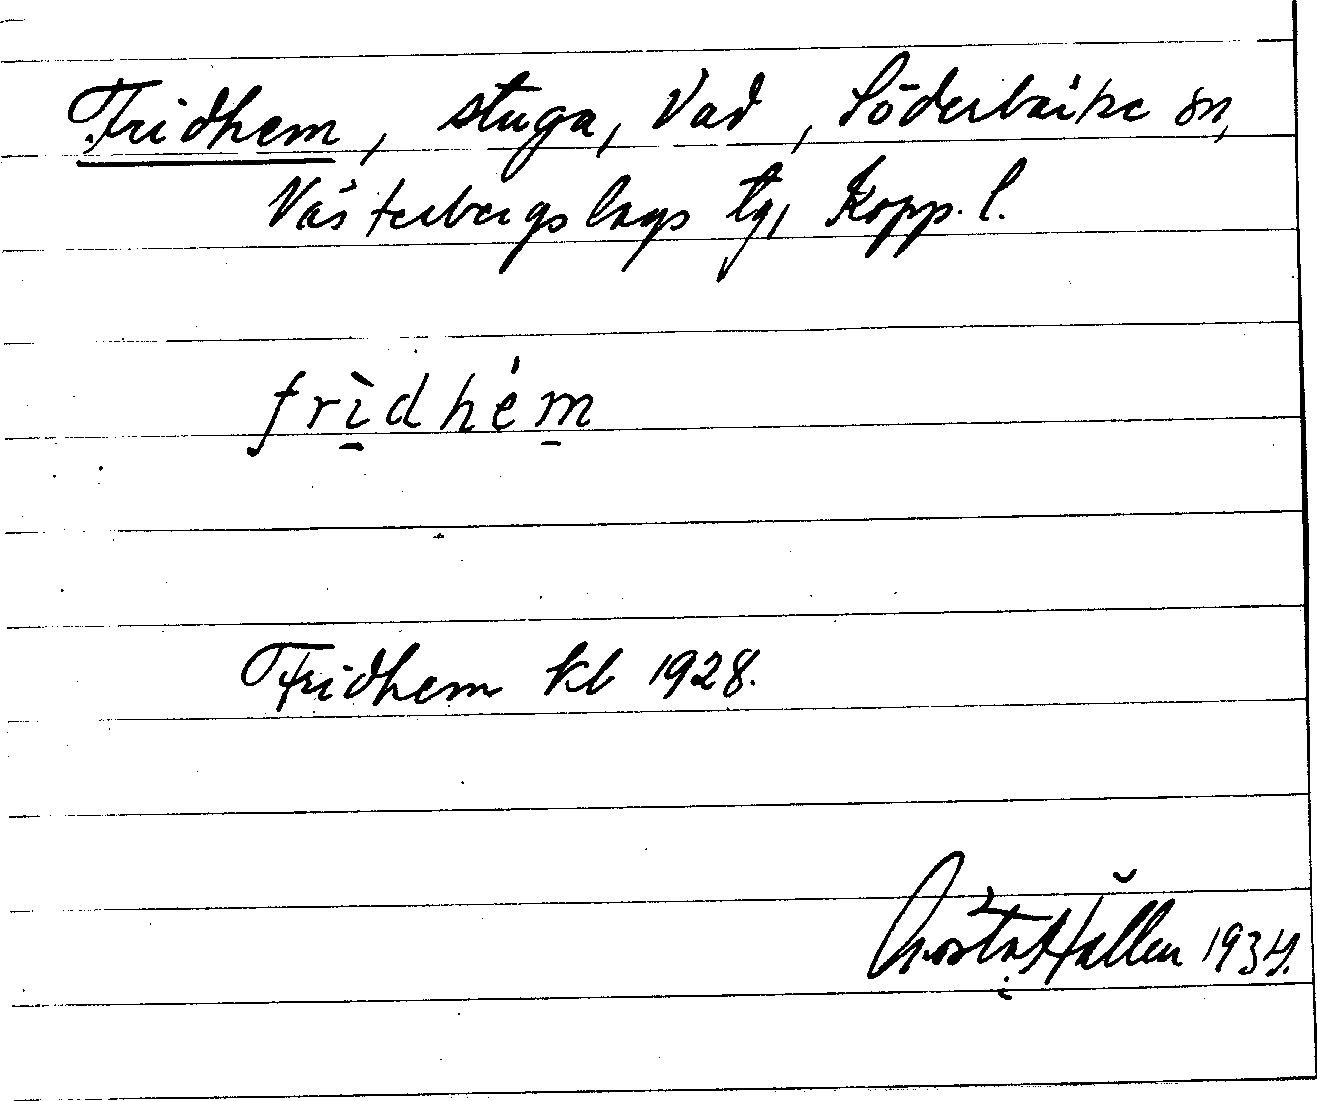 Fridhem, stuga, Vad, Söderbärke sn,
Västerbergslags tg, Kopp. l.
frìdhém
Fridhem kb 1928.
Gösta Hallen 1934.